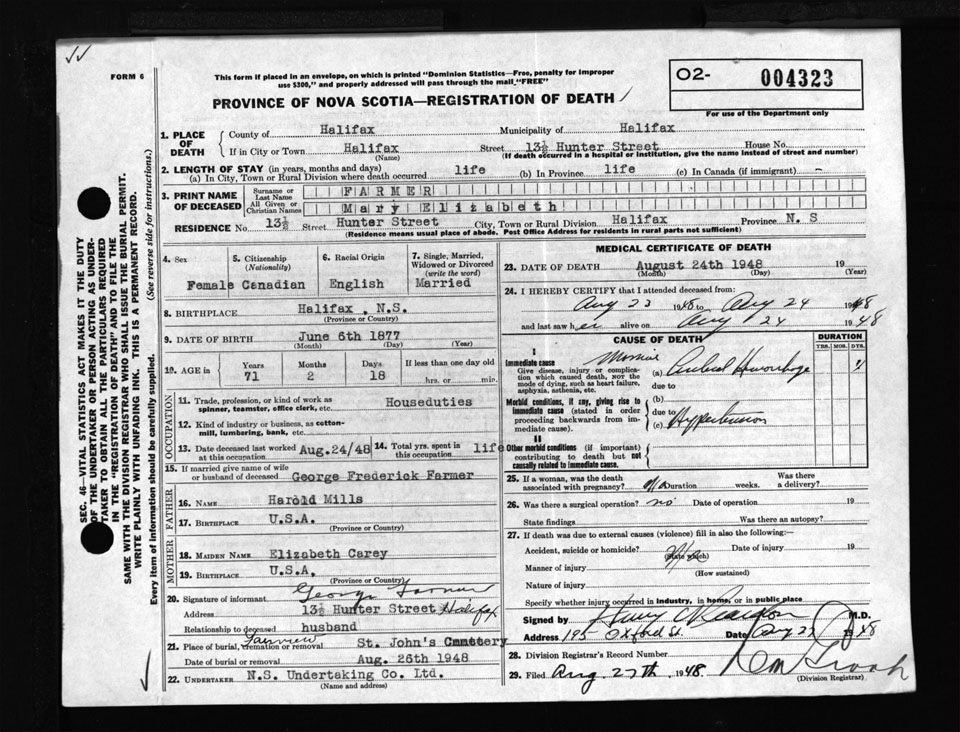 FORM 6
This form if placed in an envelope, on which is printed "Dominion Statistics—Free, penalty for improper
use $300," and properly addressed will pass through the mail "FREE"
PROVINCE OF NOVA SCOTIA—REGISTRATION OF DEATH
O2- 004323
For use of the Department only
SEC. 46—VITAL STATISTICS ACT MAKES IT THE DUTY
OF THE UNDERTAKER OR PERSON ACTING AS UNDER-
TAKER TO OBTAIN ALL THE PARTICULARS REQUIRED
IN THE "REGISTRATION OF DEATH" AND TO FILE THE
SAME WITH THE DIVISION REGISTRAR WHO SHALL ISSUE THE BURIAL PERMIT.
WRITE PLAINLY WITH UNFADING INK. THIS IS A PERMANENT RECORD.
Every item of information should be carefully supplied. (See reverse side for instructions.)
1. PLACE OF DEATH
County of Halifax Municipality of Halifax
If in City or Town Halifax Street 13½ Hunter Street House No.
(Name) (If death occurred in a hospital or institution, give the name instead of street and number)
2. LENGTH OF STAY (in years, months and days)
(a) In City, Town or Rural Division where death occurred life (b) In Province life (c) In Canada (if immigrant) -
3. PRINT NAME OF DECEASED
Surname or Last Name FARMER
All Given or Christian Names Mary Elizabeth
RESIDENCE No. 13½ Street Hunter Street City, Town or Rural Division Halifax Province N. S
(Residence means usual place of abode. Post Office Address for residents in rural parts not sufficient)
4. Sex 5. Citizenship (Nationality) 6. Racial Origin 7. Single, Married, Widowed or Divorced (write the word)
Female Canadian English Married
8. BIRTHPLACE Halifax , N.S.
(Province or Country)
9. DATE OF BIRTH June 6th 1877
(Month) (Day) (Year)
10. AGE in Years Months Days If less than one day old
71 2 18 hrs. or min.
OCCUPATION
11. Trade, profession, or kind of work as
spinner, teamster, office clerk, etc. Houseduties
12. Kind of industry or business, as cotton-
mill, lumbering, bank, etc.
13. Date deceased last worked at this occupation Aug.24/48 14. Total yrs. spent in this occupation life
15. If married give name of wife
or husband of deceased George Frederick Farmer
FATHER
16. NAME Harold Mills
17. BIRTHPLACE U.S.A.
(Province or Country)
MOTHER
18. MAIDEN NAME Elizabeth Carey
19. BIRTHPLACE U.S.A.
(Province or Country)
20. Signature of informant George Farmer
Address 13½ Hunter Street Halifax
Relationship to deceased husband
21. Place of burial, cremation or removal Fairview St. John's Cemetery
Date of burial or removal Aug. 26th 1948
22. UNDERTAKER N.S. Undertaking Co. Ltd.
(Name and address)
MEDICAL CERTIFICATE OF DEATH
23. DATE OF DEATH August 24th 1948 19
(Month) (Day) (Year)
24. I HEREBY CERTIFY that I attended deceased from:
Aug 23 1948 to Aug 24 1948
and last saw her alive on Aug 24 1948
CAUSE OF DEATH DURATION
YRS. MOS. DYS.
I
Immediate cause
Give disease, injury or complica-
tion which caused death, NOT the
mode of dying, such as heart failure,
asphyxia, asthenia, etc.
(a) Cerebral Hemorrhage
due to
Morbid conditions, if any, giving rise to
immediate cause (stated in order
proceeding backwards from im-
mediate cause).
(b)
due to
(c) Hypertension
II
Other morbid conditions (if important)
contributing to death but not
causally related to immediate cause.
25. If a woman, was the death
associated with pregnancy? no Duration weeks. Was there a delivery?
26. Was there a surgical operation? no Date of operation 19
State findings Was there an autopsy?
27. If death was due to external causes (violence) fill in also the following:—
Accident, suicide or homicide? (State which) Date of injury 19
Manner of injury
(How sustained)
Nature of injury
Specify whether injury occurred in industry, in home, or in public place
Signed by M.D.
Address 195 Oxford St. Date Aug 27 1948
28. Division Registrar's Record Number
29. Filed Aug. 27th 1948
(Division Registrar)